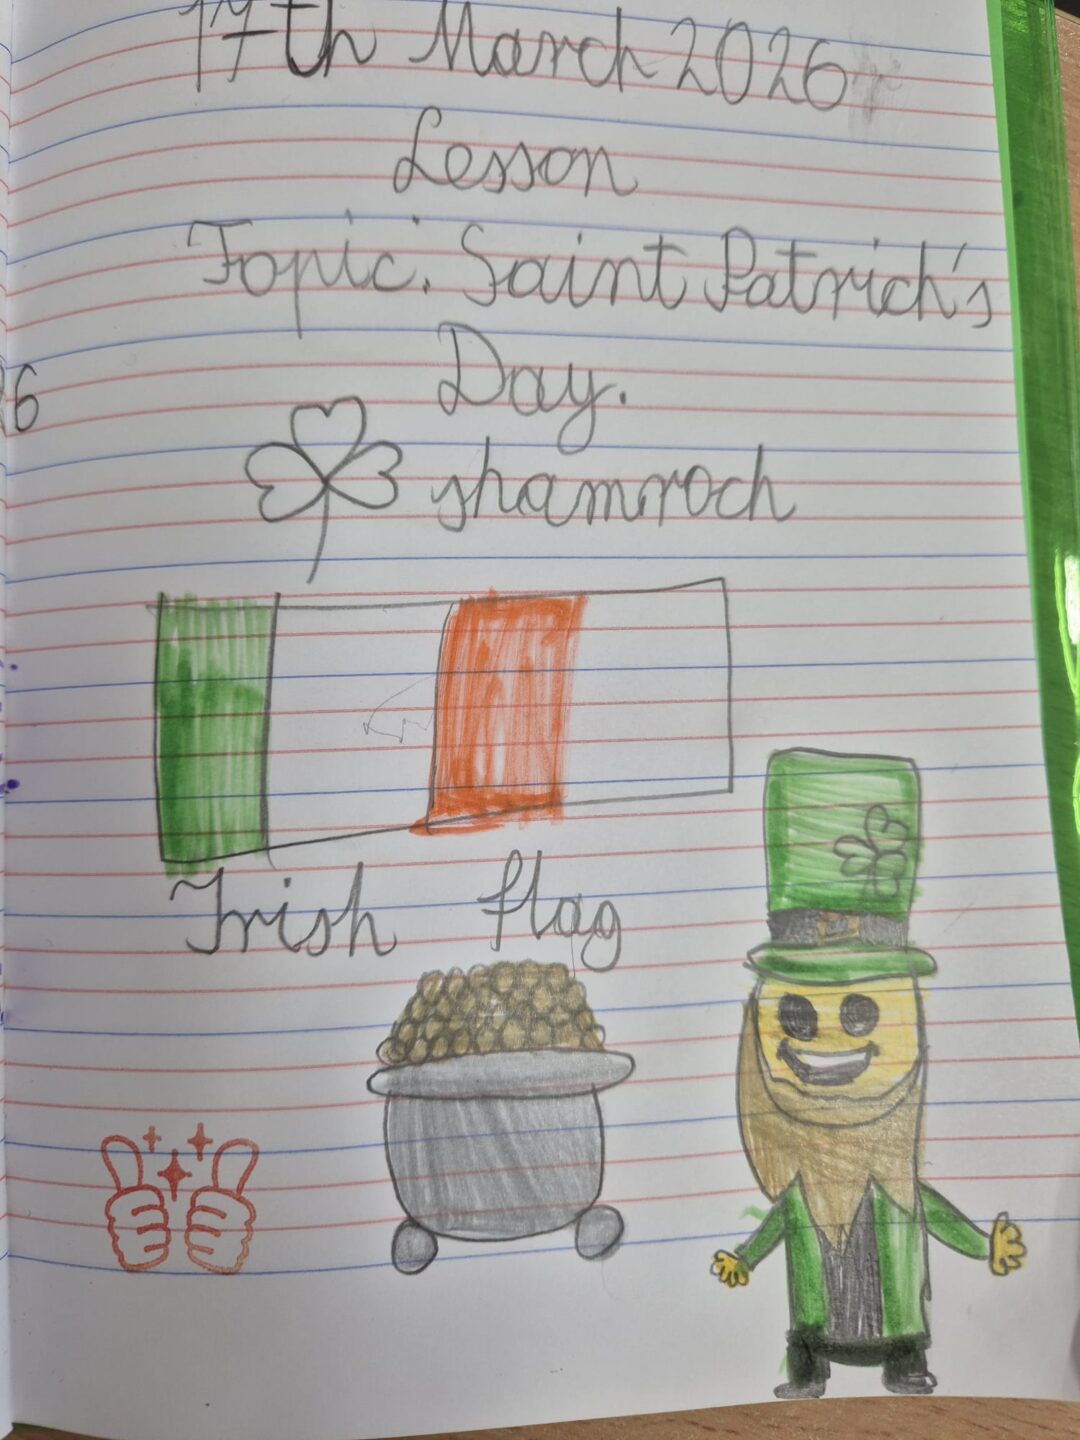 17th March 2026
Lesson
Topic: Saint Patrick's
Day.
shamroch
Irish flag